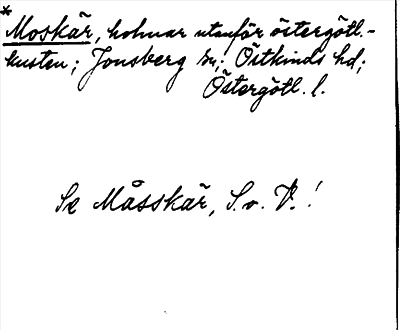 * Moskär, holmar utanför östergötl.-
kusten; Jonsberg sn; Östkinds hd;
Östergötl. l.
Se Måsskär, S. o. V.!